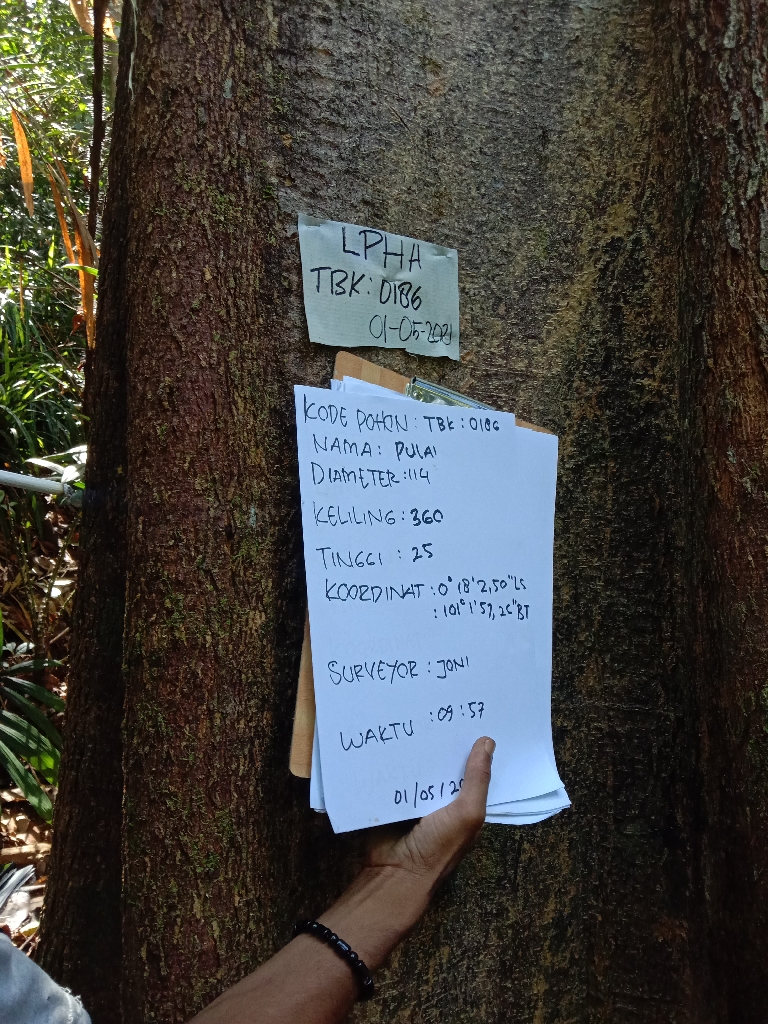 LPHA
TBK: 0186
01-05-2021
KODE POHON : TBK : 0186
NAMA : PULAI
DIAMETER : 114
KELILING : 360
TINGGI : 25
KOORDINAT : 0° 18' 2,50" LS
: 101° 1' 57, 26" BT
SURVEYOR : JONI
WAKTU : 09 : 57
01/05/20